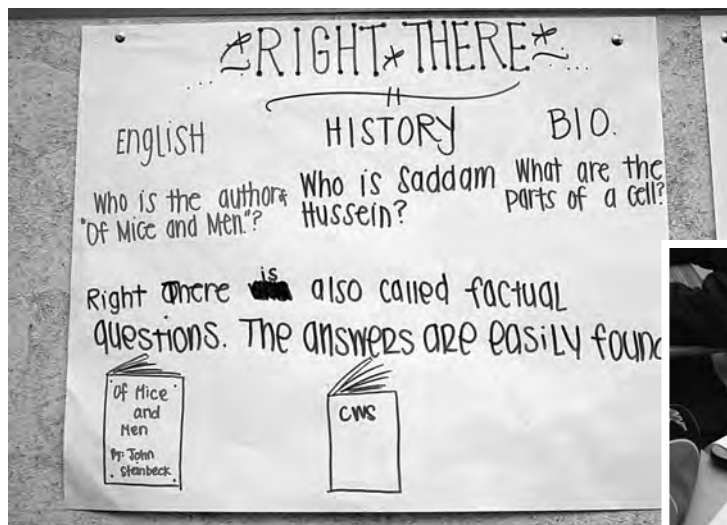 RIGHT THERE
ENGLISH
Who is the author
"Of Mice and Men."?
HISTORY
Who is Saddam
Hussein?
BIO.
What are the
parts of a cell?
Right There is also called factual
questions. The answers are easily found
Of Mice
and
Men
By: John
Steinbeck
CWS